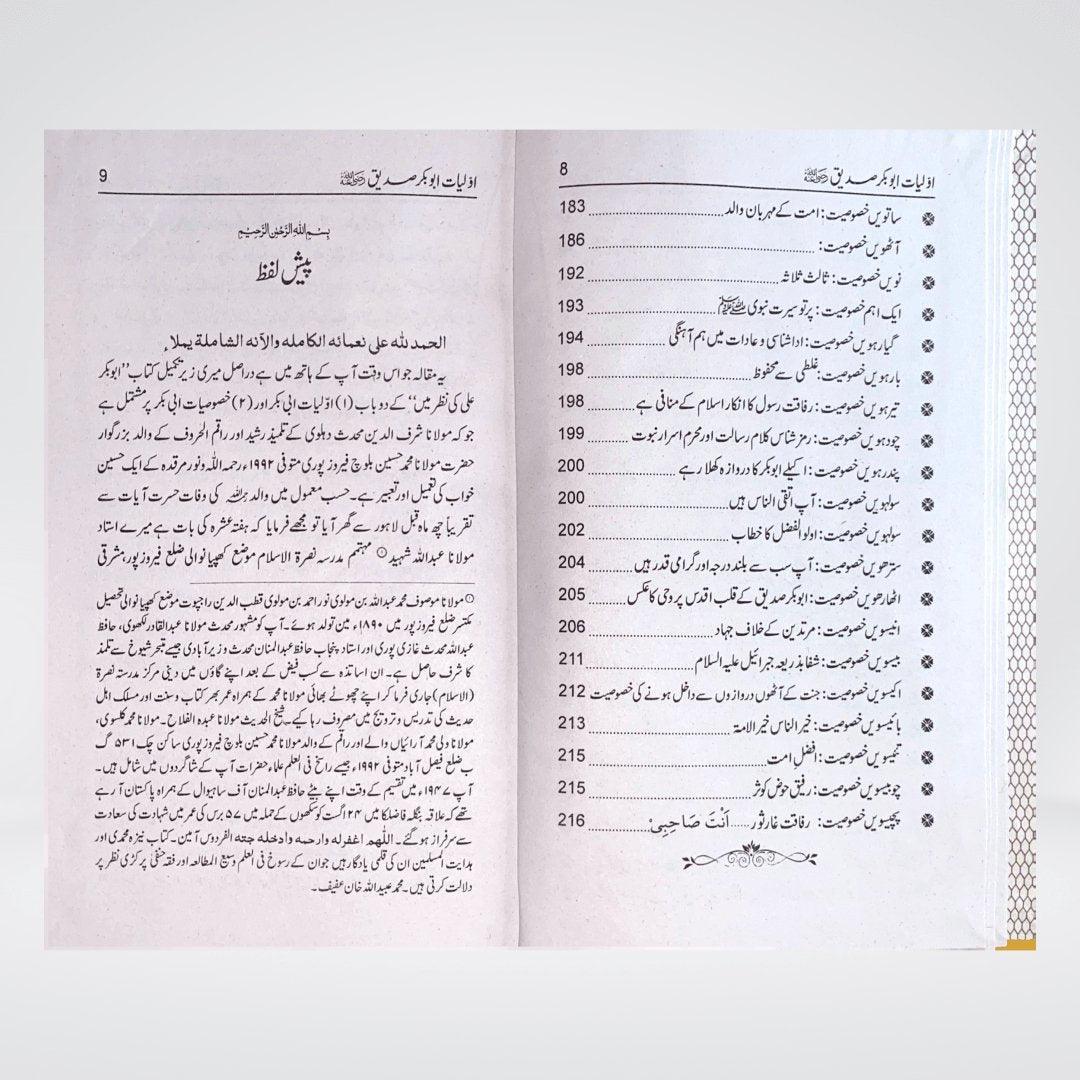 اوّلیات ابوبکر صدیق رضی اللہ عنہ 8
ساتویں خصوصیت: امت کے مہربان والد 183
آٹھویں خصوصیت: 186
نویں خصوصیت: ثالث ثلاثہ 192
ایک اہم خصوصیت: پرتو سیرت نبوی ﷺ 193
گیارہویں خصوصیت: اداشناسی و عادات میں ہم آہنگی 194
بارہویں خصوصیت: غلطی سے محفوظ 198
تیرہویں خصوصیت: رفاقت رسول کا انکار اسلام کے منافی ہے 198
چودہویں خصوصیت: رمز شناس کلام رسالت اور محرم اسرار نبوت 199
پندرہویں خصوصیت: اکیلے ابوبکر کا دروازہ کھلا رہے 200
سولہویں خصوصیت: آپ اتقی الناس ہیں 200
سولہویں خصوصیت: اولو الفضل کا خطاب 202
سترھویں خصوصیت: آپ سب سے بلند درجہ اور گرامی قدر ہیں 204
اٹھارھویں خصوصیت: ابوبکر صدیق کے قلب اقدس پر وحی کا عکس 205
انیسویں خصوصیت: مرتدین کے خلاف جہاد 206
بیسویں خصوصیت: شفا بذریعہ جبرائیل علیہ السلام 211
اکیسویں خصوصیت: جنت کے آٹھوں دروازوں سے داخل ہونے کی خصوصیت 212
بائیسویں خصوصیت: خیر الناس خیر الامة 213
تئیسویں خصوصیت: افضل امت 215
چوبیسویں خصوصیت: رفیق حوض کوثر 215
پچیسویں خصوصیت: رفاقت غار ثور ..... اَنْتَ صَاحِبِیْ 216
اوّلیات ابوبکر صدیق رضی اللہ عنہ 9
بِسْمِ اللّٰهِ الرَّحْمٰنِ الرَّحِیْمِ
پیش لفظ
الحمد لله على نعمائه الكامله والآنه الشاملة يملاء
یہ مقالہ جو اس وقت آپ کے ہاتھ میں ہے دراصل میری زیر تکمیل کتاب ’’ابوبکر
علی کی نظر میں‘‘ کے دو باب (۱) اوّلیات ابی بکر اور (۲) خصوصیات ابی بکر پر مشتمل ہے
جو کہ مولانا شرف الدین محدث دہلوی کے تلمیذ رشید اور راقم الحروف کے والد بزرگوار
حضرت مولانا محمد حسین بلوچ فیروز پوری متوفی ۱۹۹۲ء رحمہ اللہ ونور مرقدہ کے ایک حسین
خواب کی تعمیل اور تعبیر ہے۔ حسب معمول میں والد رحمہ اللہ کی وفات حسرت آیات سے
تقریباً چھ ماہ قبل لاہور سے گھر آیا تو مجھے فرمایا کہ ہفتہ عشرہ کی بات ہے میرے استاد
مولانا عبداللہ شہید ① مہتمم مدرسہ نصرۃ الاسلام موضع کھپیانوالی ضلع فیروز پور، مشرقی
① مولانا موصوف محمد عبداللہ بن مولوی نور احمد بن مولوی قطب الدین راجپوت موضع کھپیانوالی تحصیل
مکتسر ضلع فیروز پور میں ۱۸۹۰ء مین تولد ہوئے۔ آپ کو مشہور محدث مولانا عبدالقادر لکھوی، حافظ
عبداللہ محدث غازی پوری اور استاد پنجاب حافظ عبدالمنان محدث وزیر آبادی جیسے متبحر شیوخ سے تلمذ
کا شرف حاصل ہے۔ ان اساتذہ سے کسب فیض کے بعد اپنے گاؤں میں دینی مرکز مدرسہ نصرۃ
(الاسلام) جاری فرما کر اپنے چھوٹے بھائی مولانا محمد کے ہمراہ عمر بھر کتاب وسنت اور مسلک اہل
حدیث کی تدریس و ترویج میں مصروف رہا کیے۔ شیخ الحدیث مولانا عبدہ الفلاح۔ مولانا محمد کلسوی،
مولانا ولی محمد آرائیاں والے اور راقم کے والد مولانا محمد حسین بلوچ فیروز پوری ساکن چک ۵۳۱ گ
ب ضلع فیصل آباد متوفی ۱۹۹۲ء جیسے راسخ فی العلم علماء حضرات آپ کے شاگردوں میں شامل ہیں۔
آپ ۱۹۴۷ء میں تقسیم کے وقت اپنے بیٹے حافظ عبدالمنان آف ساہیوال کے ہمراہ پاکستان آ رہے
تھے کہ علاقہ بنگلہ فاضلکا میں ۲۴ اگست کو سکھوں کے حملہ میں ۵۷ برس کی عمر میں شہادت کی سعادت
سے سرفراز ہو گئے۔ اللهم اغفر له وارحمه وادخله جنه الفردوس آمین۔ کتاب نیزہ محمدی اور
ہدایت المسلمین ان کی قلمی یادگار ہیں جو ان کے رسوخ فی العلم وسیع المطالعہ اور فقہ حنفی پر کڑی نظر پر
دلالت کرتی ہیں۔ محمد عبید اللہ خان عفیف۔